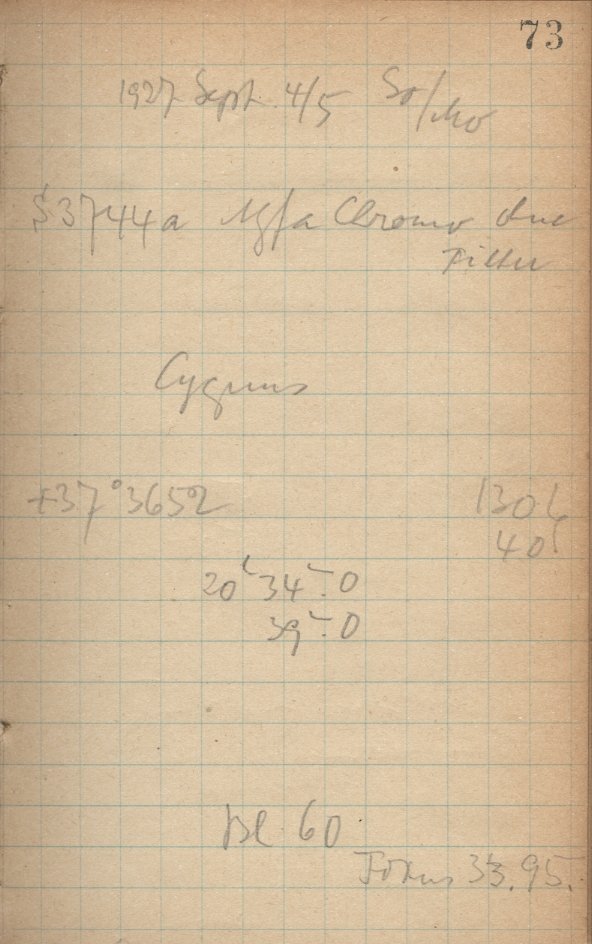 73
1927 Sept. 4/5 So/Mo
S3744a Agfa Chromo ohne
Filter
Cygnus
+37°3652
130
40
20h 34m.0
39m.0
Bl 60
Fokus 33.95.